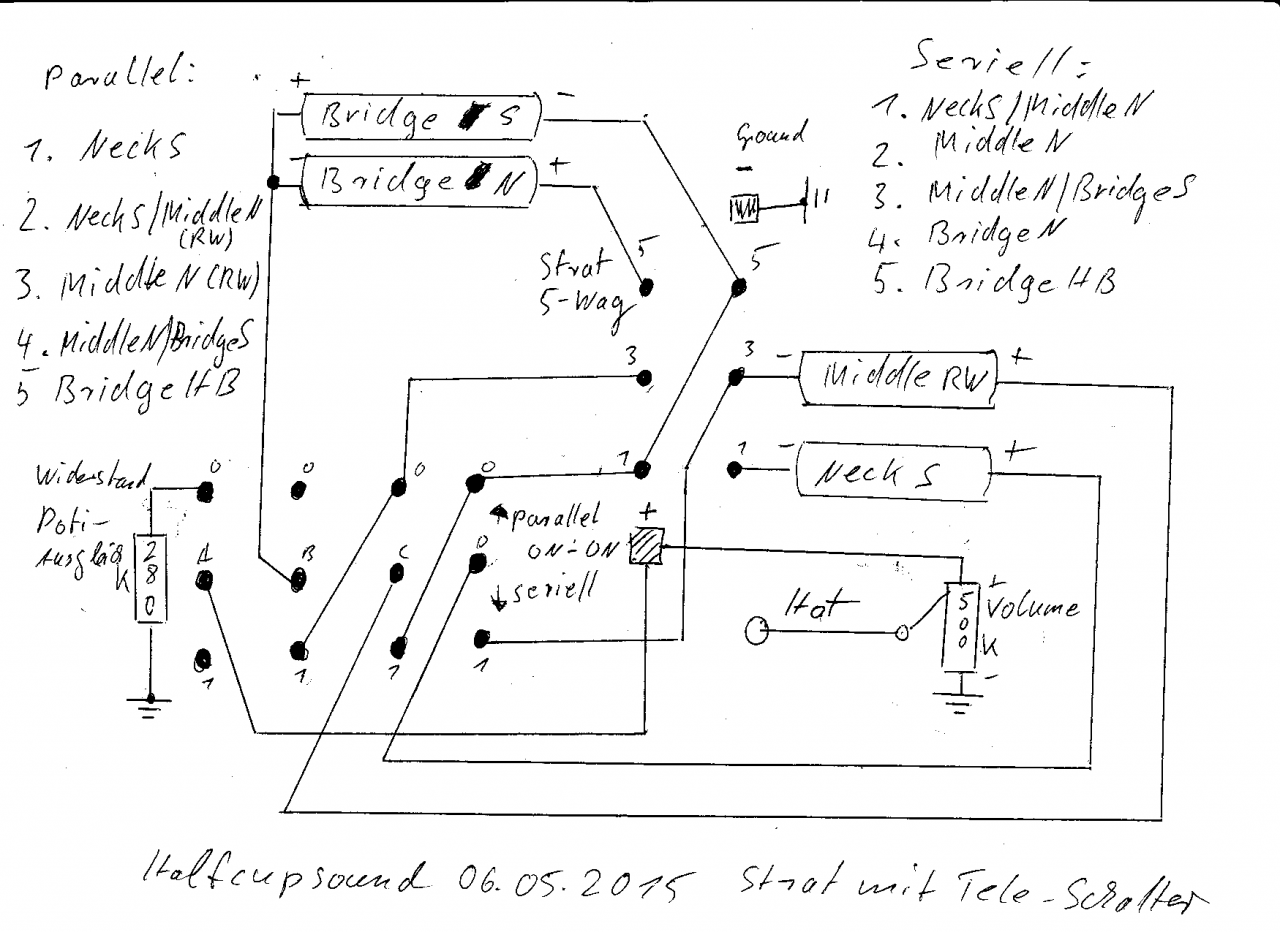 Parallel:
1. Neck S
2. Neck S/Middle N
(RW)
3. Middle N (RW)
4. Middle N/Bridge S
5 Bridge HB
Seriell:
1. Neck S/Middle N
2. Middle N
3. Middle N/Bridge S
4. Bridge N
5. Bridge HB
+ Bridge S -
- Bridge N +
Ground
-
Strat
5-Way
5 5
3 3
1 1
- Middle RW +
- Neck S +
Widerstand
Poti-
Ausgleich
280
K
0 0 0 0
A B C D
1 1 1 1
parallel
ON-ON
seriell
+
Hot
+
500
K
Volume
-
Halfcupsound 06.05.2015 Strat mit Tele-Schalter